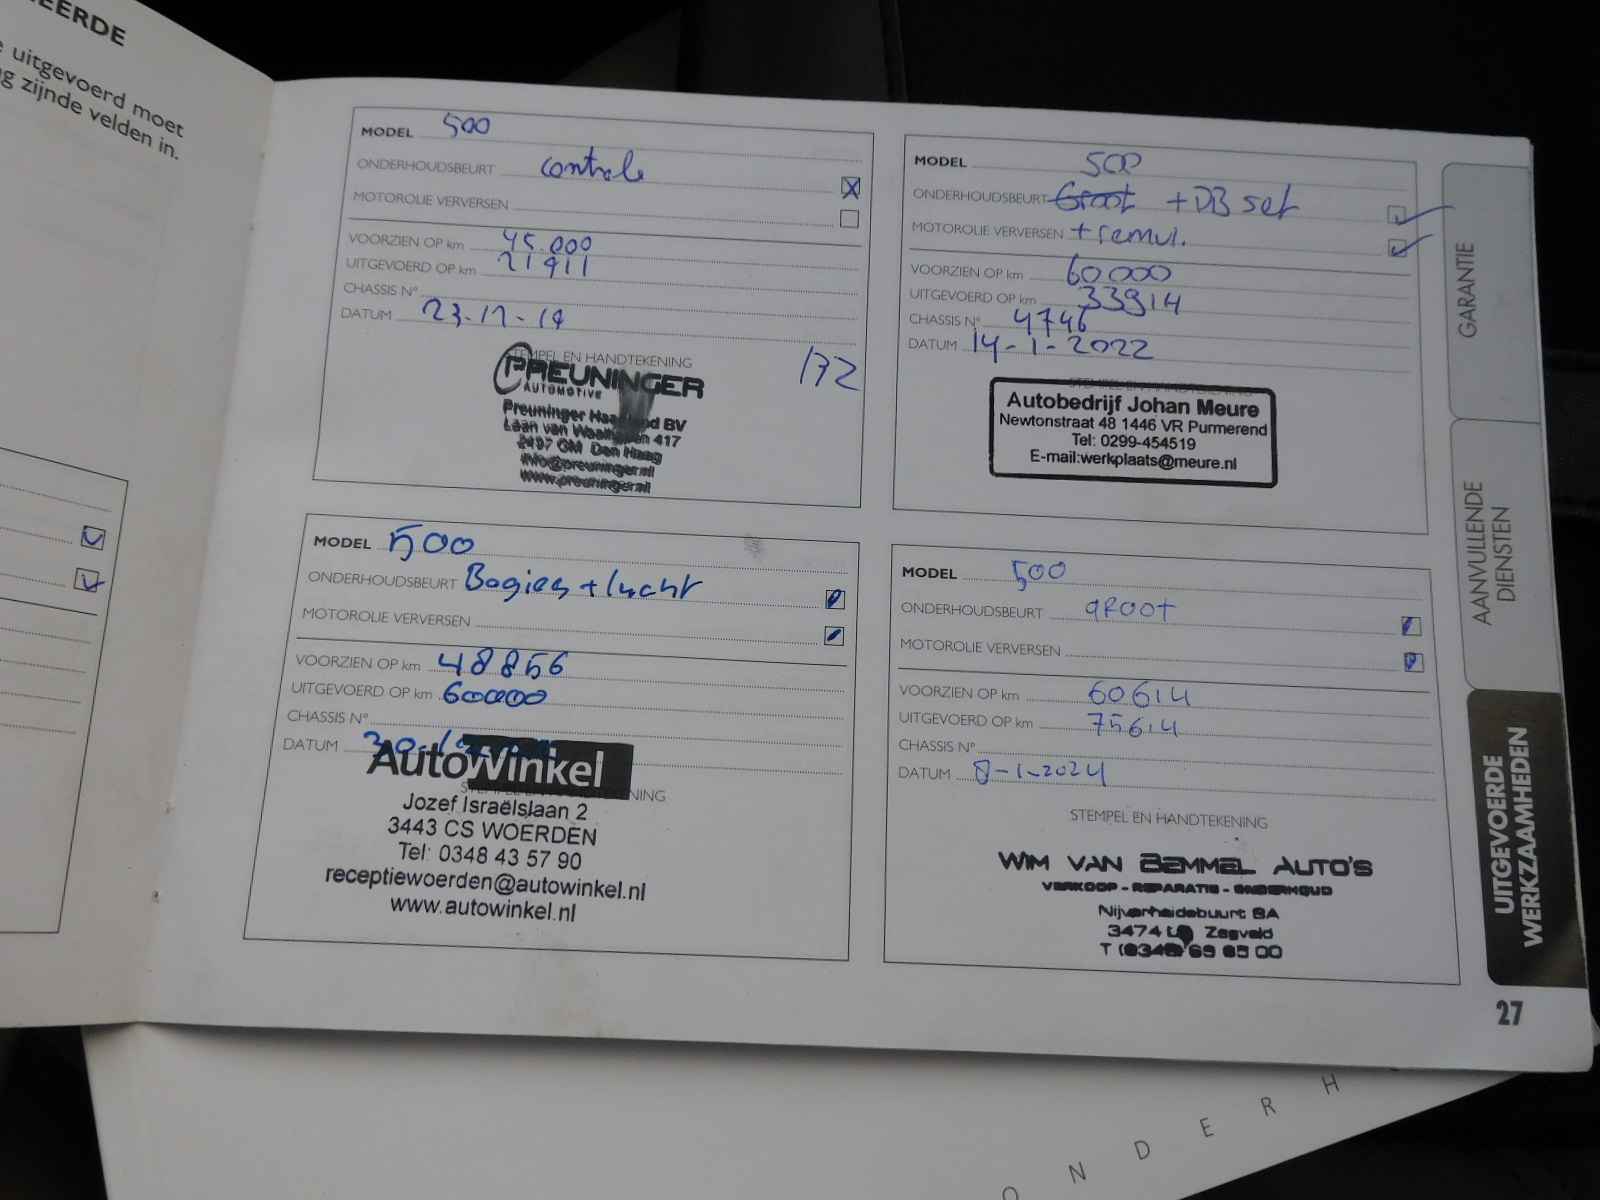 EERDE
uitgevoerd moet
zijnde velden in.
MODEL 500
ONDERHOUDSBEURT controle
MOTOROLIE VERVERSEN
VOORZIEN OP km 45.000
UITGEVOERD OP km 21911
CHASSIS N°
DATUM
STEMPEL EN HANDTEKENING
PREUNINGER
AUTOMOTIVE
Preuninger Haagland BV
Laan van Waalhaven 417
2497 GM Den Haag
info@preuninger.nl
www.preuninger.nl
MODEL 500
ONDERHOUDSBEURT Groot + DB set
MOTOROLIE VERVERSEN + remvl.
VOORZIEN OP km 60000
UITGEVOERD OP km 33914
CHASSIS N° 4746
DATUM 14-1-2022
Autobedrijf Johan Meure
Newtonstraat 48 1446 VR Purmerend
Tel: 0299-454519
E-mail:werkplaats@meure.nl
MODEL 500
ONDERHOUDSBEURT Bogies + lucht
MOTOROLIE VERVERSEN
VOORZIEN OP km 48856
UITGEVOERD OP km 60000
CHASSIS N°
DATUM
AutoWinkel
Jozef Israëlslaan 2
3443 CS WOERDEN
Tel: 0348 43 57 90
receptiewoerden@autowinkel.nl
www.autowinkel.nl
MODEL 500
ONDERHOUDSBEURT GROOT
MOTOROLIE VERVERSEN
VOORZIEN OP km 60614
UITGEVOERD OP km 75614
CHASSIS N°
DATUM 8-1-2024
STEMPEL EN HANDTEKENING
WIM VAN BEMMEL AUTO'S
VERKOOP - REPARATIE - ONDERHOUD
Nijverheidsbuurt 8A
3474 Zegveld
T (0348) 69 65 00
GARANTIE
AANVULLENDE
DIENSTEN
UITGEVOERDE
WERKZAAMHEDEN
27
O N D E R H